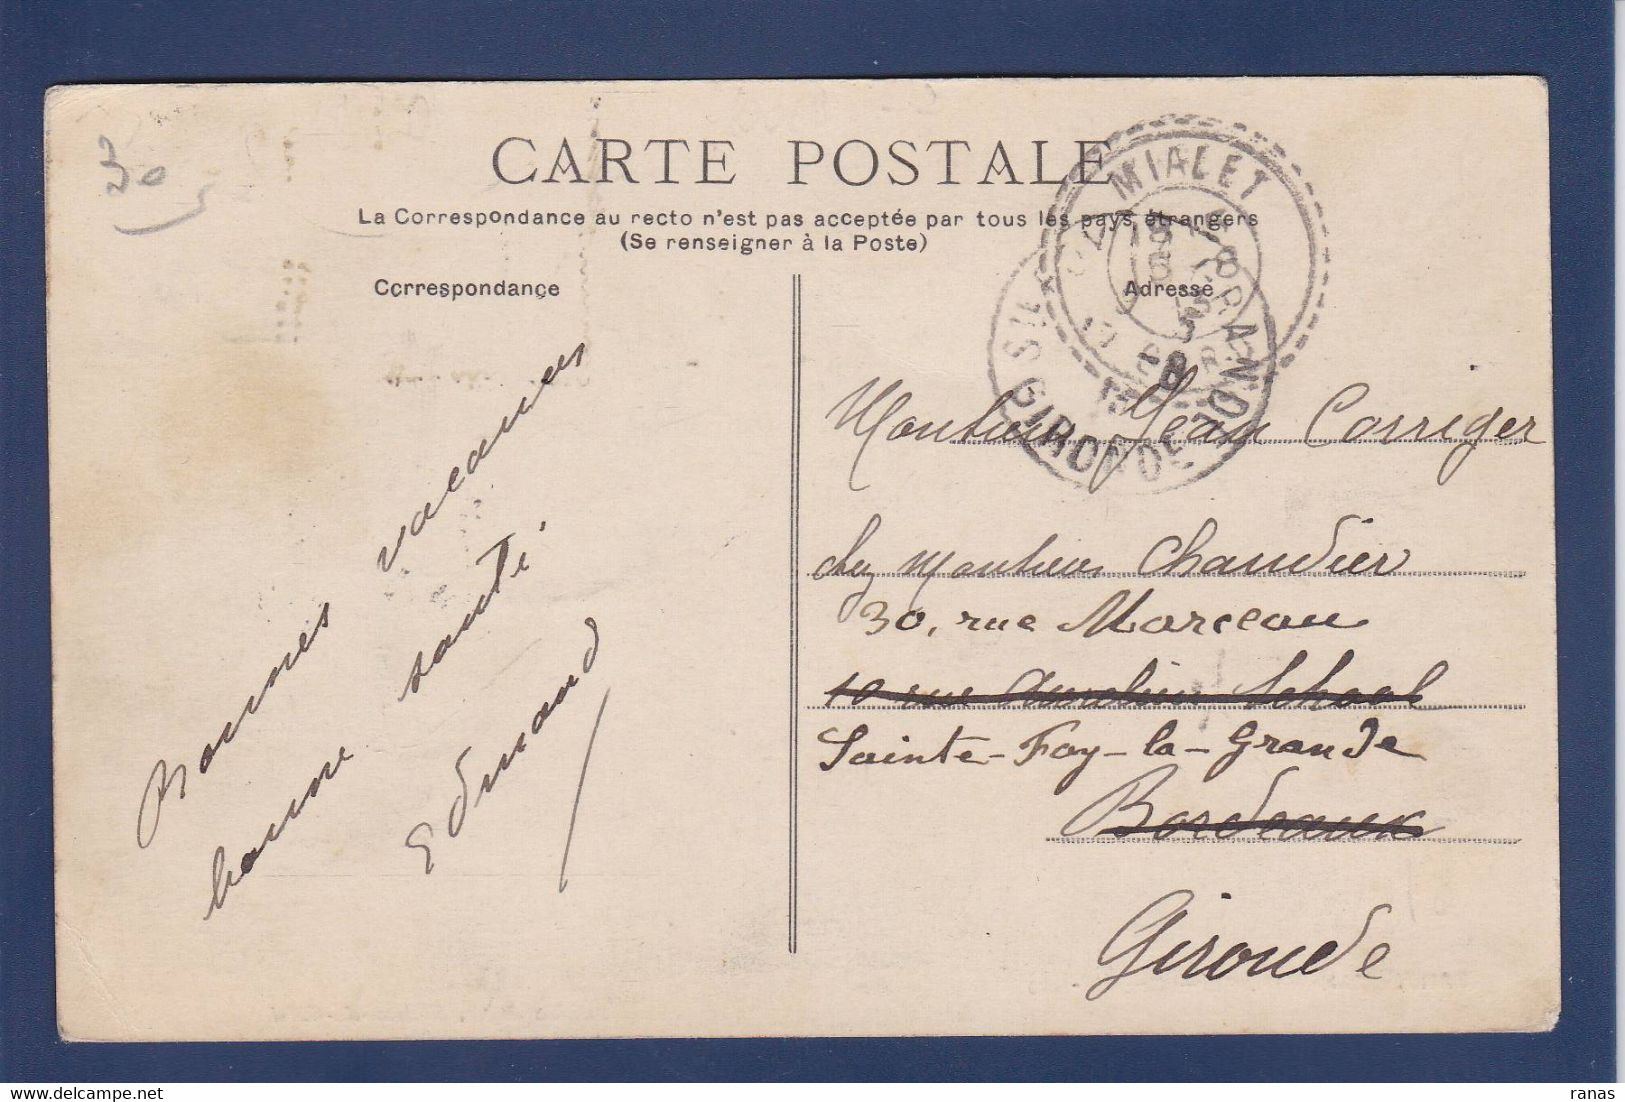 30
CARTE POSTALE
La Correspondance au recto n'est pas acceptée par tous les pays étrangers
(Se renseigner à la Poste)
Correspondance
Adresse
MIALET
GIRONDE
Bonnes vacances
bonne santé.
Edmond
Monsieur Jean Corriger
chez Monsieur Chandier
30, rue Marceau
10 rue Aurélien Scholl
Sainte-Foy-la-Grande
Bordeaux
Gironde
ranas